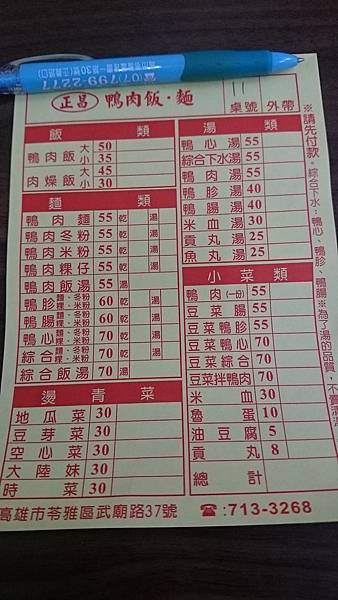 (07)799-2277
正昌 鴨肉飯·麵
11
桌號 外帶
※請先付款。綜合下水:鴨心、鴨胗、鴨腸※為了湯的品質,不賣清湯
飯類
鴨肉飯 大 50
小 35
肉燥飯 大 45
小 30
麵類
鴨肉麵 55 乾 湯
鴨肉冬粉 55 乾 湯
鴨肉米粉 55 乾 湯
鴨肉粿仔 55 乾 湯
鴨肉飯湯 55 湯
鴨胗 麵、冬粉 粿、米粉 60 乾 湯
鴨腸 麵、冬粉 粿、米粉 60 乾 湯
鴨心 麵、冬粉 粿、米粉 70 乾 湯
綜合 麵、冬粉 粿、米粉 70 乾 湯
綜合飯湯 70 湯
燙青菜
地瓜菜 30
豆芽菜 30
空心菜 30
大陸妹 30
時菜 30
湯類
鴨心湯 55
綜合下水湯 55
鴨肉湯 55
鴨胗湯 40
鴨腸湯 40
米血湯 30
貢丸湯 25
魚丸湯 25
小菜類
鴨肉(一份) 55
豆菜腸 55
豆菜鴨胗 55
豆菜鴨心 70
豆菜綜合 70
豆菜拌鴨肉 70
米血 30
魯蛋 10
油豆腐 5
貢丸 8
總計
高雄市苓雅區武廟路37號 ☎:713-3268